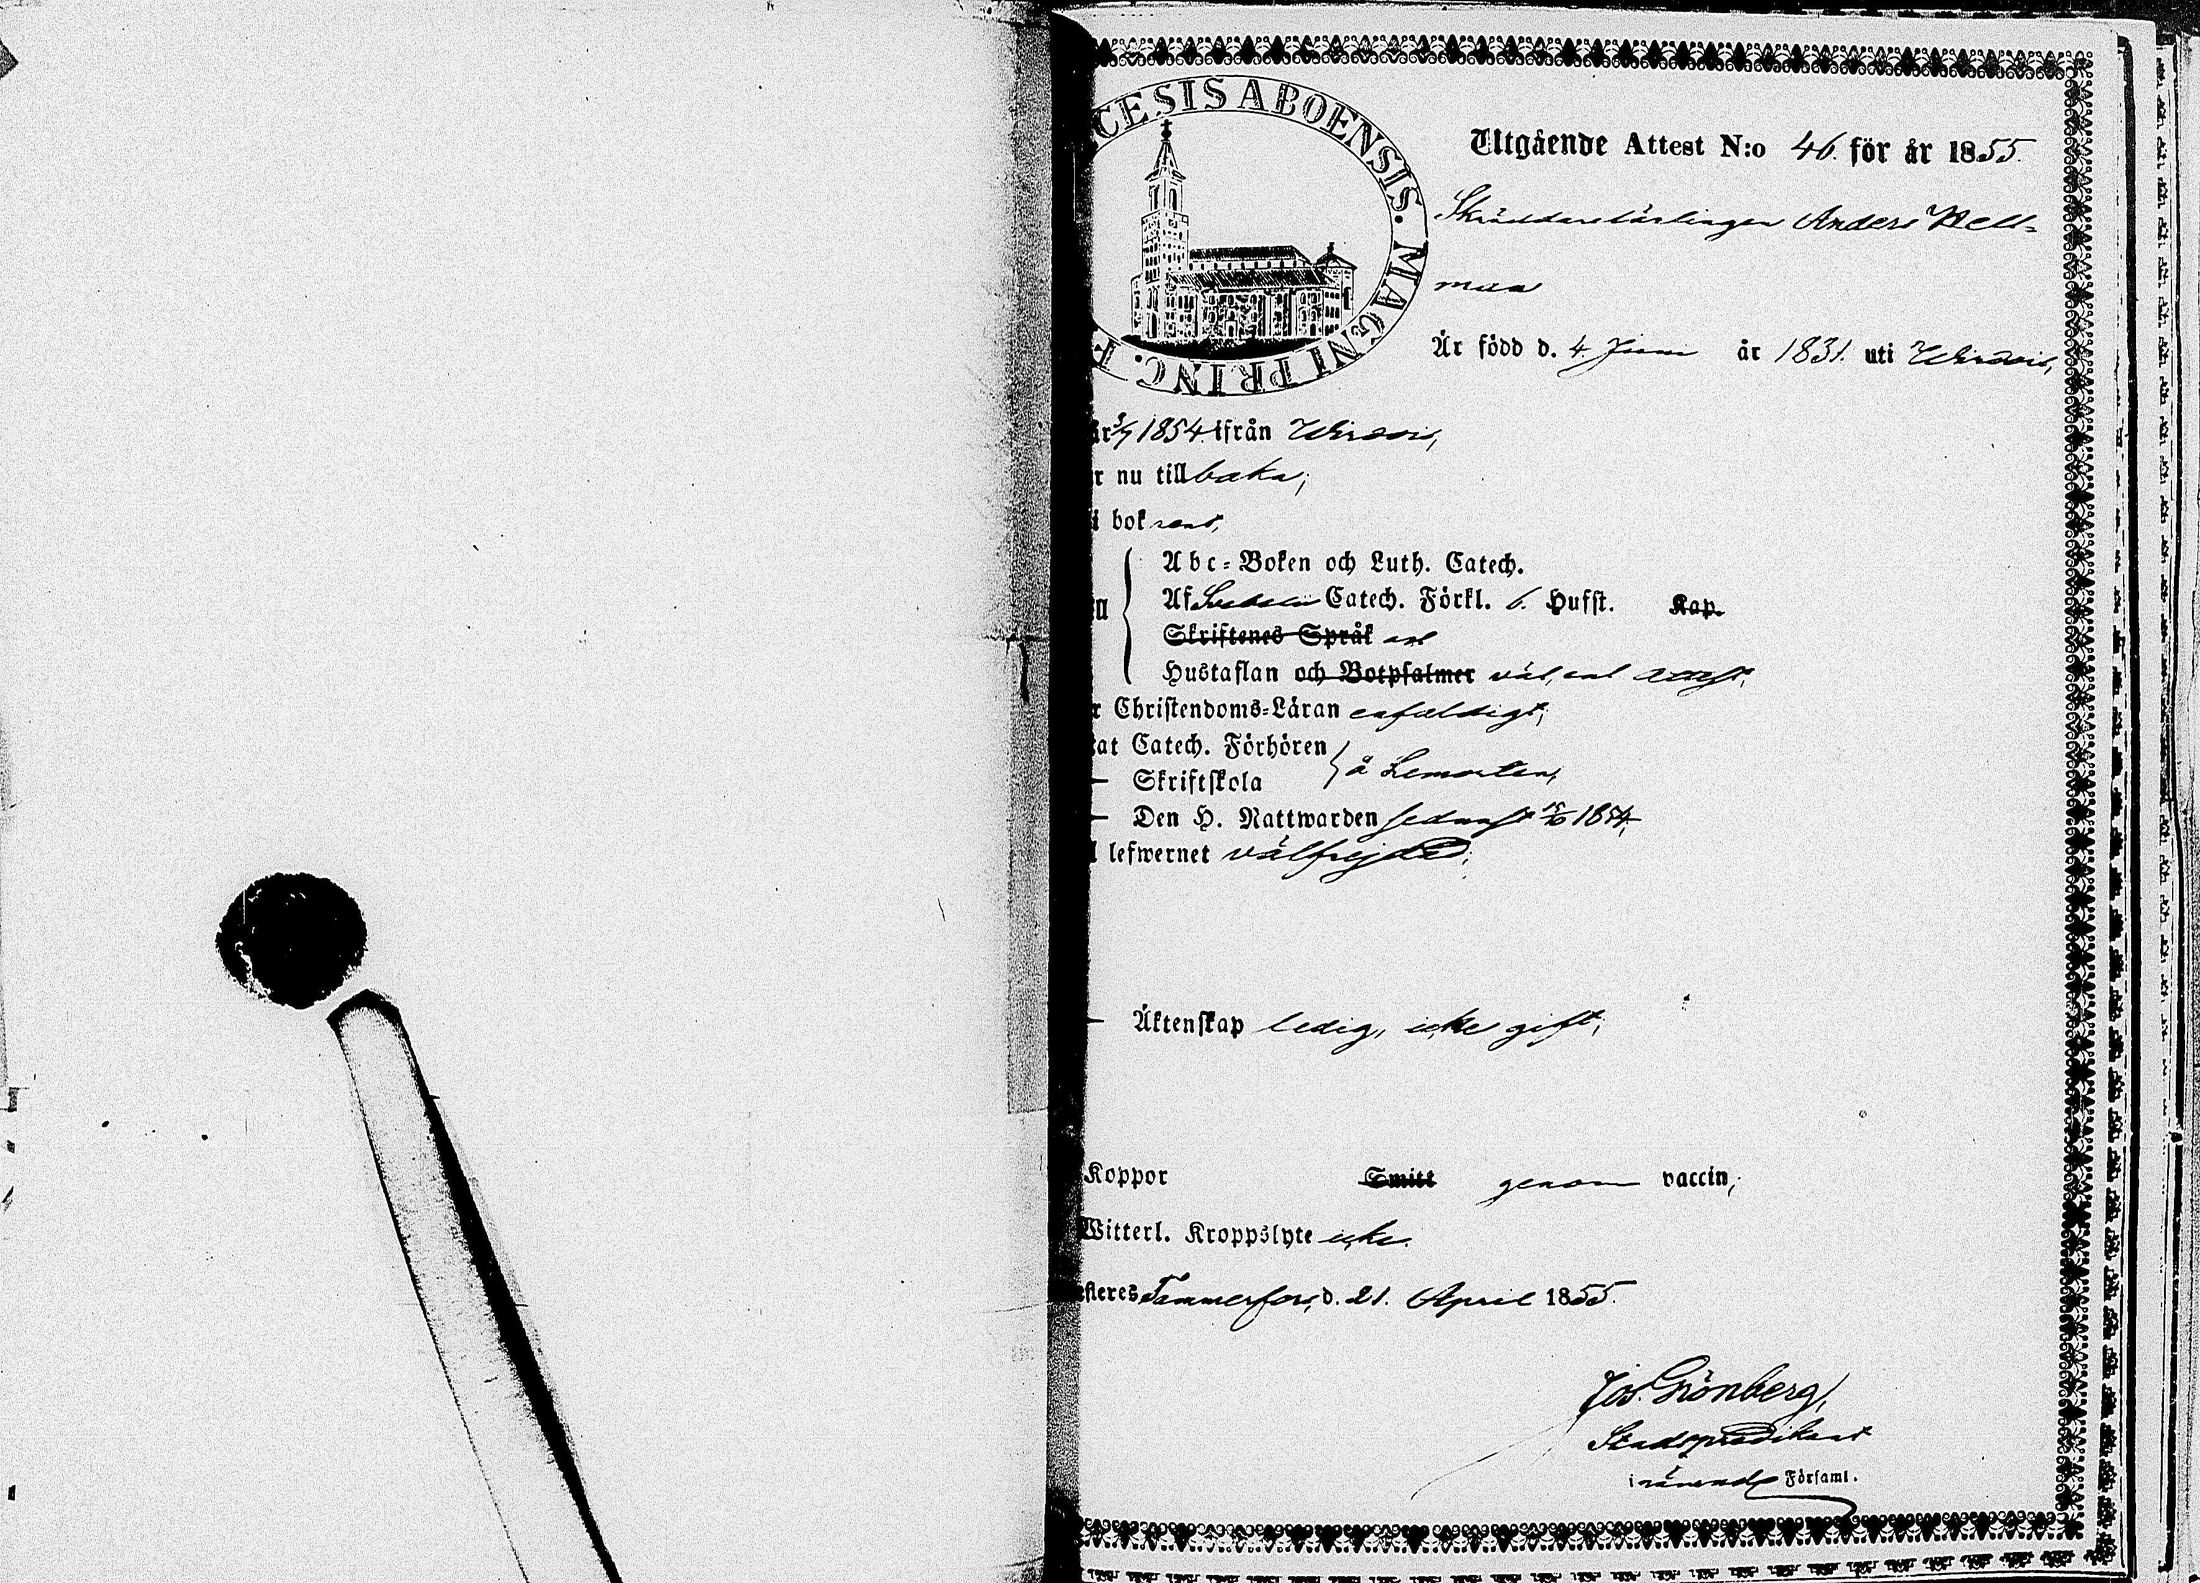 CESIS ABOENSIS. MAGNI PRINC. F
Utgående Attest N:o 46. för år 1855.
Skräddarelärlingen Anders Well-
man
Är född d. 4 Juni år 1831. uti Wirdois,
är 5/7 1854 ifrån Wirdois,
r nu tillbaka;
i bok rent,
Abc-Boken och Luth. Catech.
Af Svebelii Catech. Förkl. 6. Hufst. Kap.
Skriftenes Språk
Hustaflan och Botpsalmer väl,
r Christendoms-Läran enfaldigt;
kat Catech. Förhören
— Skriftskola
å
— Den H. Nattwarden sednast 15/10 1854,
l lefwernet välfrejdad;
— Äktenskap ledig, icke gift;
Koppor Smitt genom vaccin;
Witterl. Kroppslyte icke.
esteres Tammerfors, d. 21. April 1855.
Jos. Grönberg,
Stadspredikant
i Församl.